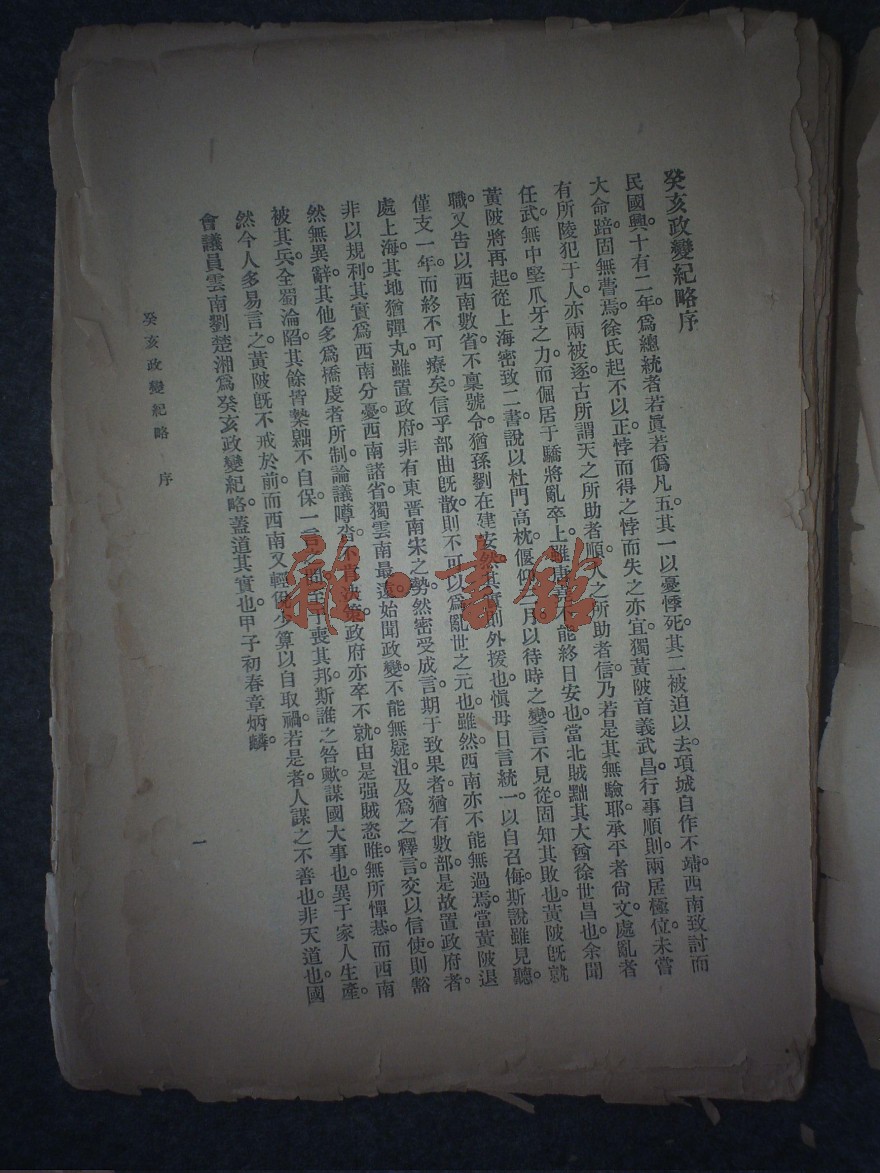 癸亥政變紀略序
民國興十有二年。爲總統者若眞若僞凡五。其一以憂悸死。其二被迫以去。項城自作不靖。西南致討而
大命踣。固無訾焉。徐氏起不以正。悖而得之。悖而失之亦宜。獨黃陂首義武昌。行事順則。兩居極位。未嘗
有所陵犯于人。亦兩被逐。古所謂天之所助者順。人之所助者信。乃若是其無驗耶。承平者尙文。處亂者
任武。無中堅爪牙之力。而倔居于驕將亂卒上。雖唐 能終日安也。當北賊黜其大酋徐世昌也。余聞
黃陂將再起。從上海密致二書。說以杜門高枕。偃仰 月以待時之變。言不見從。固知其敗也。黃陂旣就
職。又告以西南數省。不稟號令。猶孫劉在建安。然其實則外援也。愼毋日言統一。以自召侮。斯說雖見聽。
僅支一年。而終不可療矣。信乎部曲旣散。則不可以爲亂世之元也。雖然。西南亦不能無過焉。當黃陂退
處上海。其地猶彈丸。雖置政府。非有東晋南宋之勢。然密受成言。期于致果者。猶有數部。是故置政府者。
非以規利。其實爲西南分憂。西南諸省。獨雲南最遠。始聞政變。不能無疑沮。及爲之釋言。交以信使。則豁
然無異辭。其他多爲橋虔者所制。論議噂沓。不肯決策。政府亦卒不就。由是强賊恣睢。無所憚惎。而西南
被其兵。全蜀淪陷。其餘皆槷黜不自保。一言 間。至于喪其邦。斯誰之咎歟。謀國大事也。異于家人生產。
然今人多易言之。黃陂旣不戒於前。而西南又輕侻少算以自取禍。若是者。人謀之不善也。非天道也。國
會議員雲南劉楚湘爲癸亥政變紀略。蓋道其實也。甲子初春章炳麟。
癸亥政變紀略 序
一
雜·書館